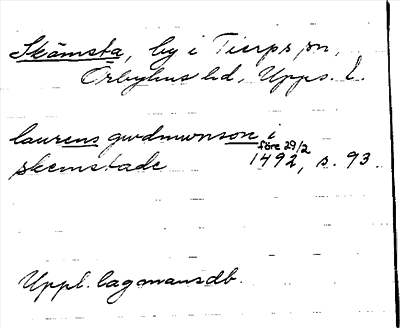 Skämsta, by i Tierps sn,
Örbyhus hd, Upps. l.
laurens gwdmwnson i
före 29/2
skemstade 1492, s. 93.
Uppl. lagmansdb.